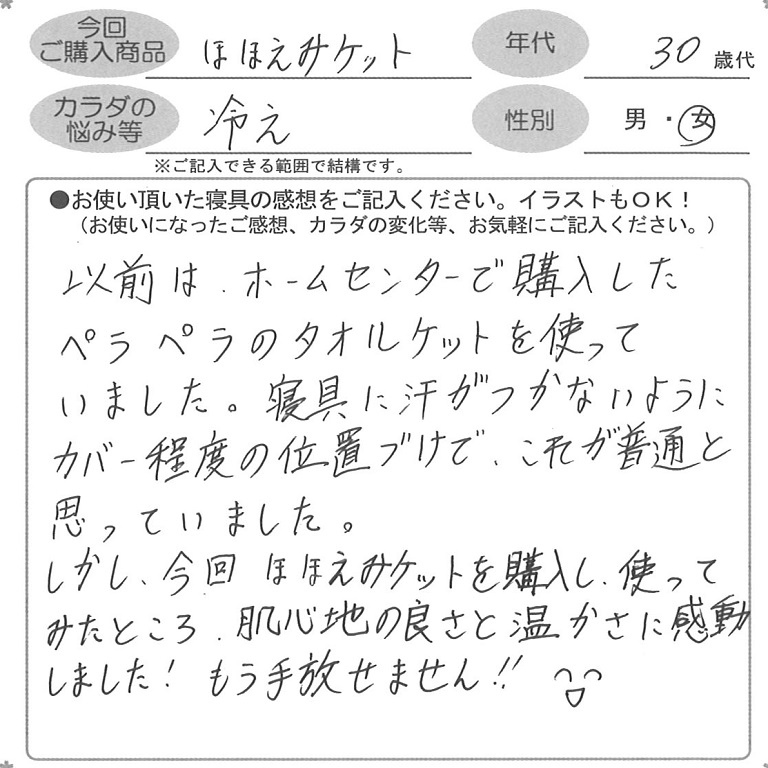 今回
ご購入商品
ほほえみケット
年代
30歳代
カラダの
悩み等
冷え
性別
男・女
※ご記入できる範囲で結構です。
●お使い頂いた寝具の感想をご記入ください。イラストもOK!
(お使いになったご感想、カラダの変化等、お気軽にご記入ください。)
以前は、ホームセンターで購入した
ペラペラのタオルケットを使って
いました。寝具に汗がつかないように
カバー程度の位置づけで、これが普通と
思っていました。
しかし、今回ほほえみケットを購入し、使って
みたところ、肌心地の良さと温かさに感動
しました!もう手放せません!!